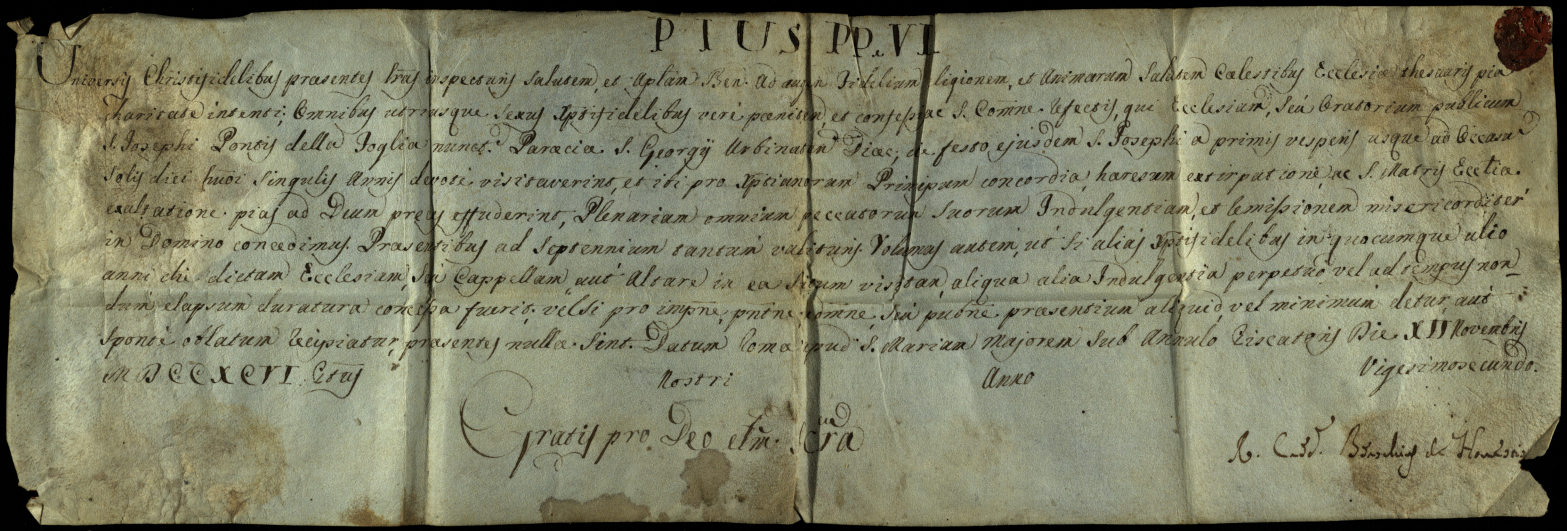 PIUS PP. VI
Universis Christifidelibus præsentes lras inspecturis salutem, et Aplam Ben. Ad augn Fidelium ligionem, et Animarum salutem Cælestibus Ecclesiæ thesauris pia
charitate intenti; Omnibus utriusque sexus Xptifidelibus verè pæniten et confessis, ac S. Comne refectis, qui Ecclesiam, seù Oratorium publicum
S. Josephi Pontis della Foglia nunct. Paræciæ S. Georgÿ Urbinaten Diæc; die festo ejusdem S. Josephi a primis vesperis usque ad Occasū
Solis diei hujōi singulis Annis devotè visitaverint, et ibi pro Xptianorum Principum concordia, hæresum extirpatione, ac S. Matris Eccliæ
exaltatione pias ad Deum preces effuderint, Plenariam omnium peccatorum suorum Indulgentiam, et remissionem misericorditer
in Domino concedimus. Præsentibus ad Septennium tantum valituris. Volumus autem, ut si alias Xptifidelibus in quocumque alio
anni die dictam Ecclesiam, seù Cappellam aut Altare in ea situm visitan, aliqua alia Indulgentia perpetuò vel ad tempus non
dum elapsum duratura concessa fuerit, vel si pro impne, pntne, admne, seù pubne præsentium aliquid vel minimum detur, aut
sponte oblatum recipiatur, præsentes nullæ sint. Datum Romæ apud S. Mariam Majorem sub Annulo Piscatoris Die XII Novembris
MDCCXCVI. Ptus Nostri Anno Vigesimosecundo.
Gratis pro Deo etm. Scrā
R. Card. Braschius de Honestis